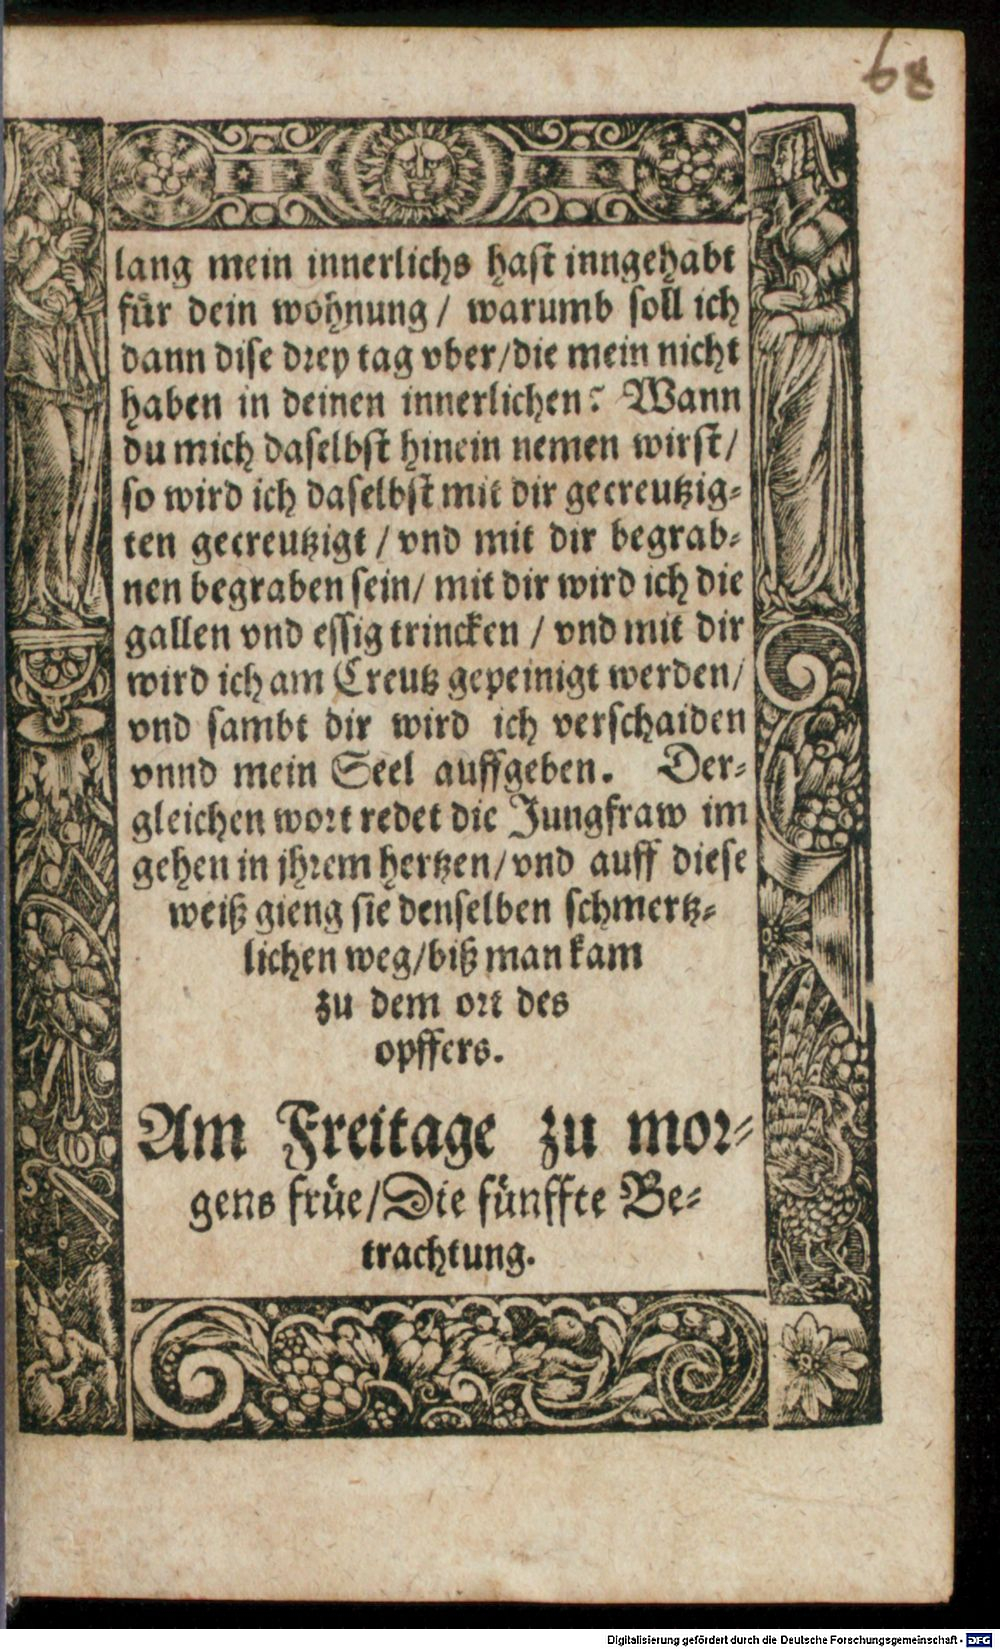 68
lang mein innerlichs hast inngehabt
für dein wohnung / warumb soll ich
dann dise drey tag vber / die mein nicht
haben in deinen innerlichen? Wann
du mich daselbst hinein nemen wirst /
so wird ich daselbst mit dir gecreutzig-
ten gecreutzigt / vnd mit dir begrab-
nen begraben sein / mit dir wird ich die
gallen vnd essig trincken / vnd mit dir
wird ich am Creutz gepeinigt werden /
vnd sambt dir wird ich verschaiden
vnnd mein Seel auffgeben. Der-
gleichen wort redet die Jungfraw im
gehen in jhrem hertzen / vnd auff diese
weiß gieng sie denselben schmertz-
lichen weg / biß man kam
zu dem ort des
opffers.
Am Freitage zu mor-
gens früe / Die fünffte Be-
trachtung.
Digitalisierung gefördert durch die Deutsche Forschungsgemeinschaft - DFG